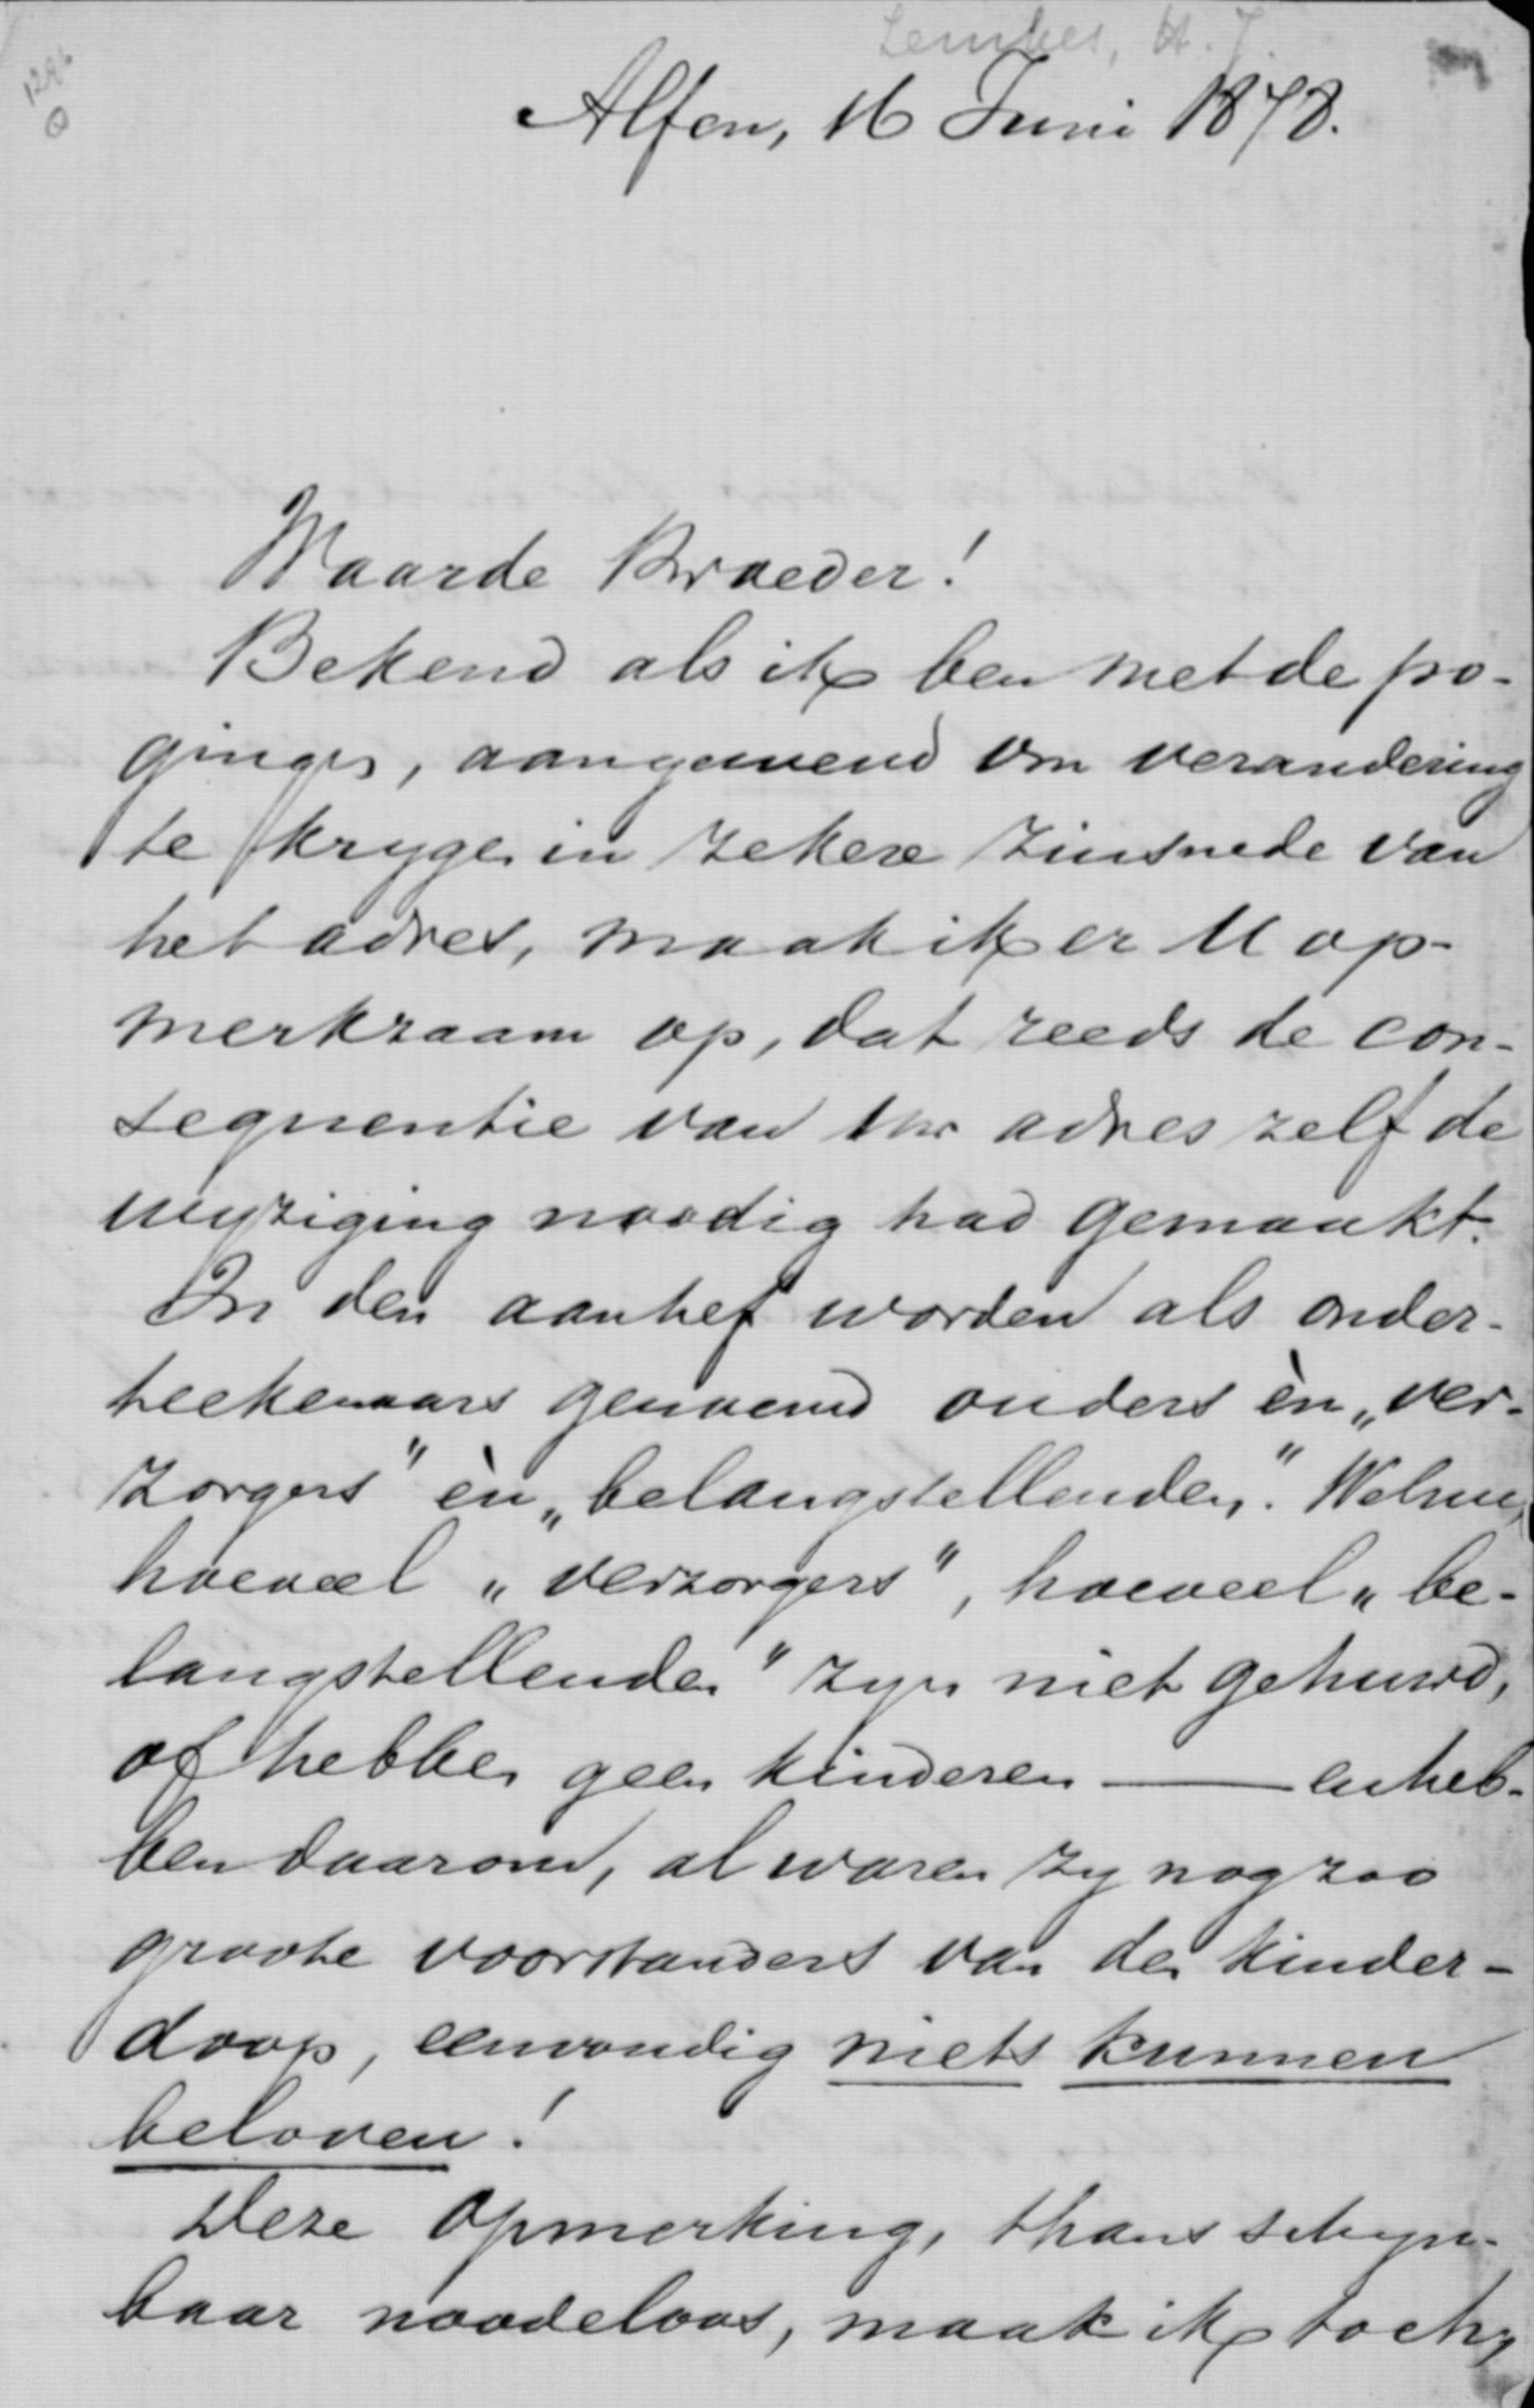 Lemkes, H. J.
Alfen, 16 Juni 1878.
Waarde Broeder!
Bekend als ik ben met de po-
gingen, aangewend om verandering
te krygen in zekere zinsnede van
het adres, maak ik er U op-
merkzaam op, dat reeds de con-
sequentie van het adres zelf de
wyziging noodig had gemaakt.
In den aanhef worden als onder-
teekenaars genoemd ouders èn „ver-
zorgers" èn „belangstellenden". Welnu,
hoeveel „verzorgers", hoeveel „be-
langstellenden" zyn niet gehuwd,
of hebben geen kinderen — en heb-
ben daarom, al waren zy nog zoo
groote voorstanders van den kinder-
doop, eenvoudig niets kunnen
beloven!
Deze opmerking, thans schyn-
baar noodeloos, maak ik toch,